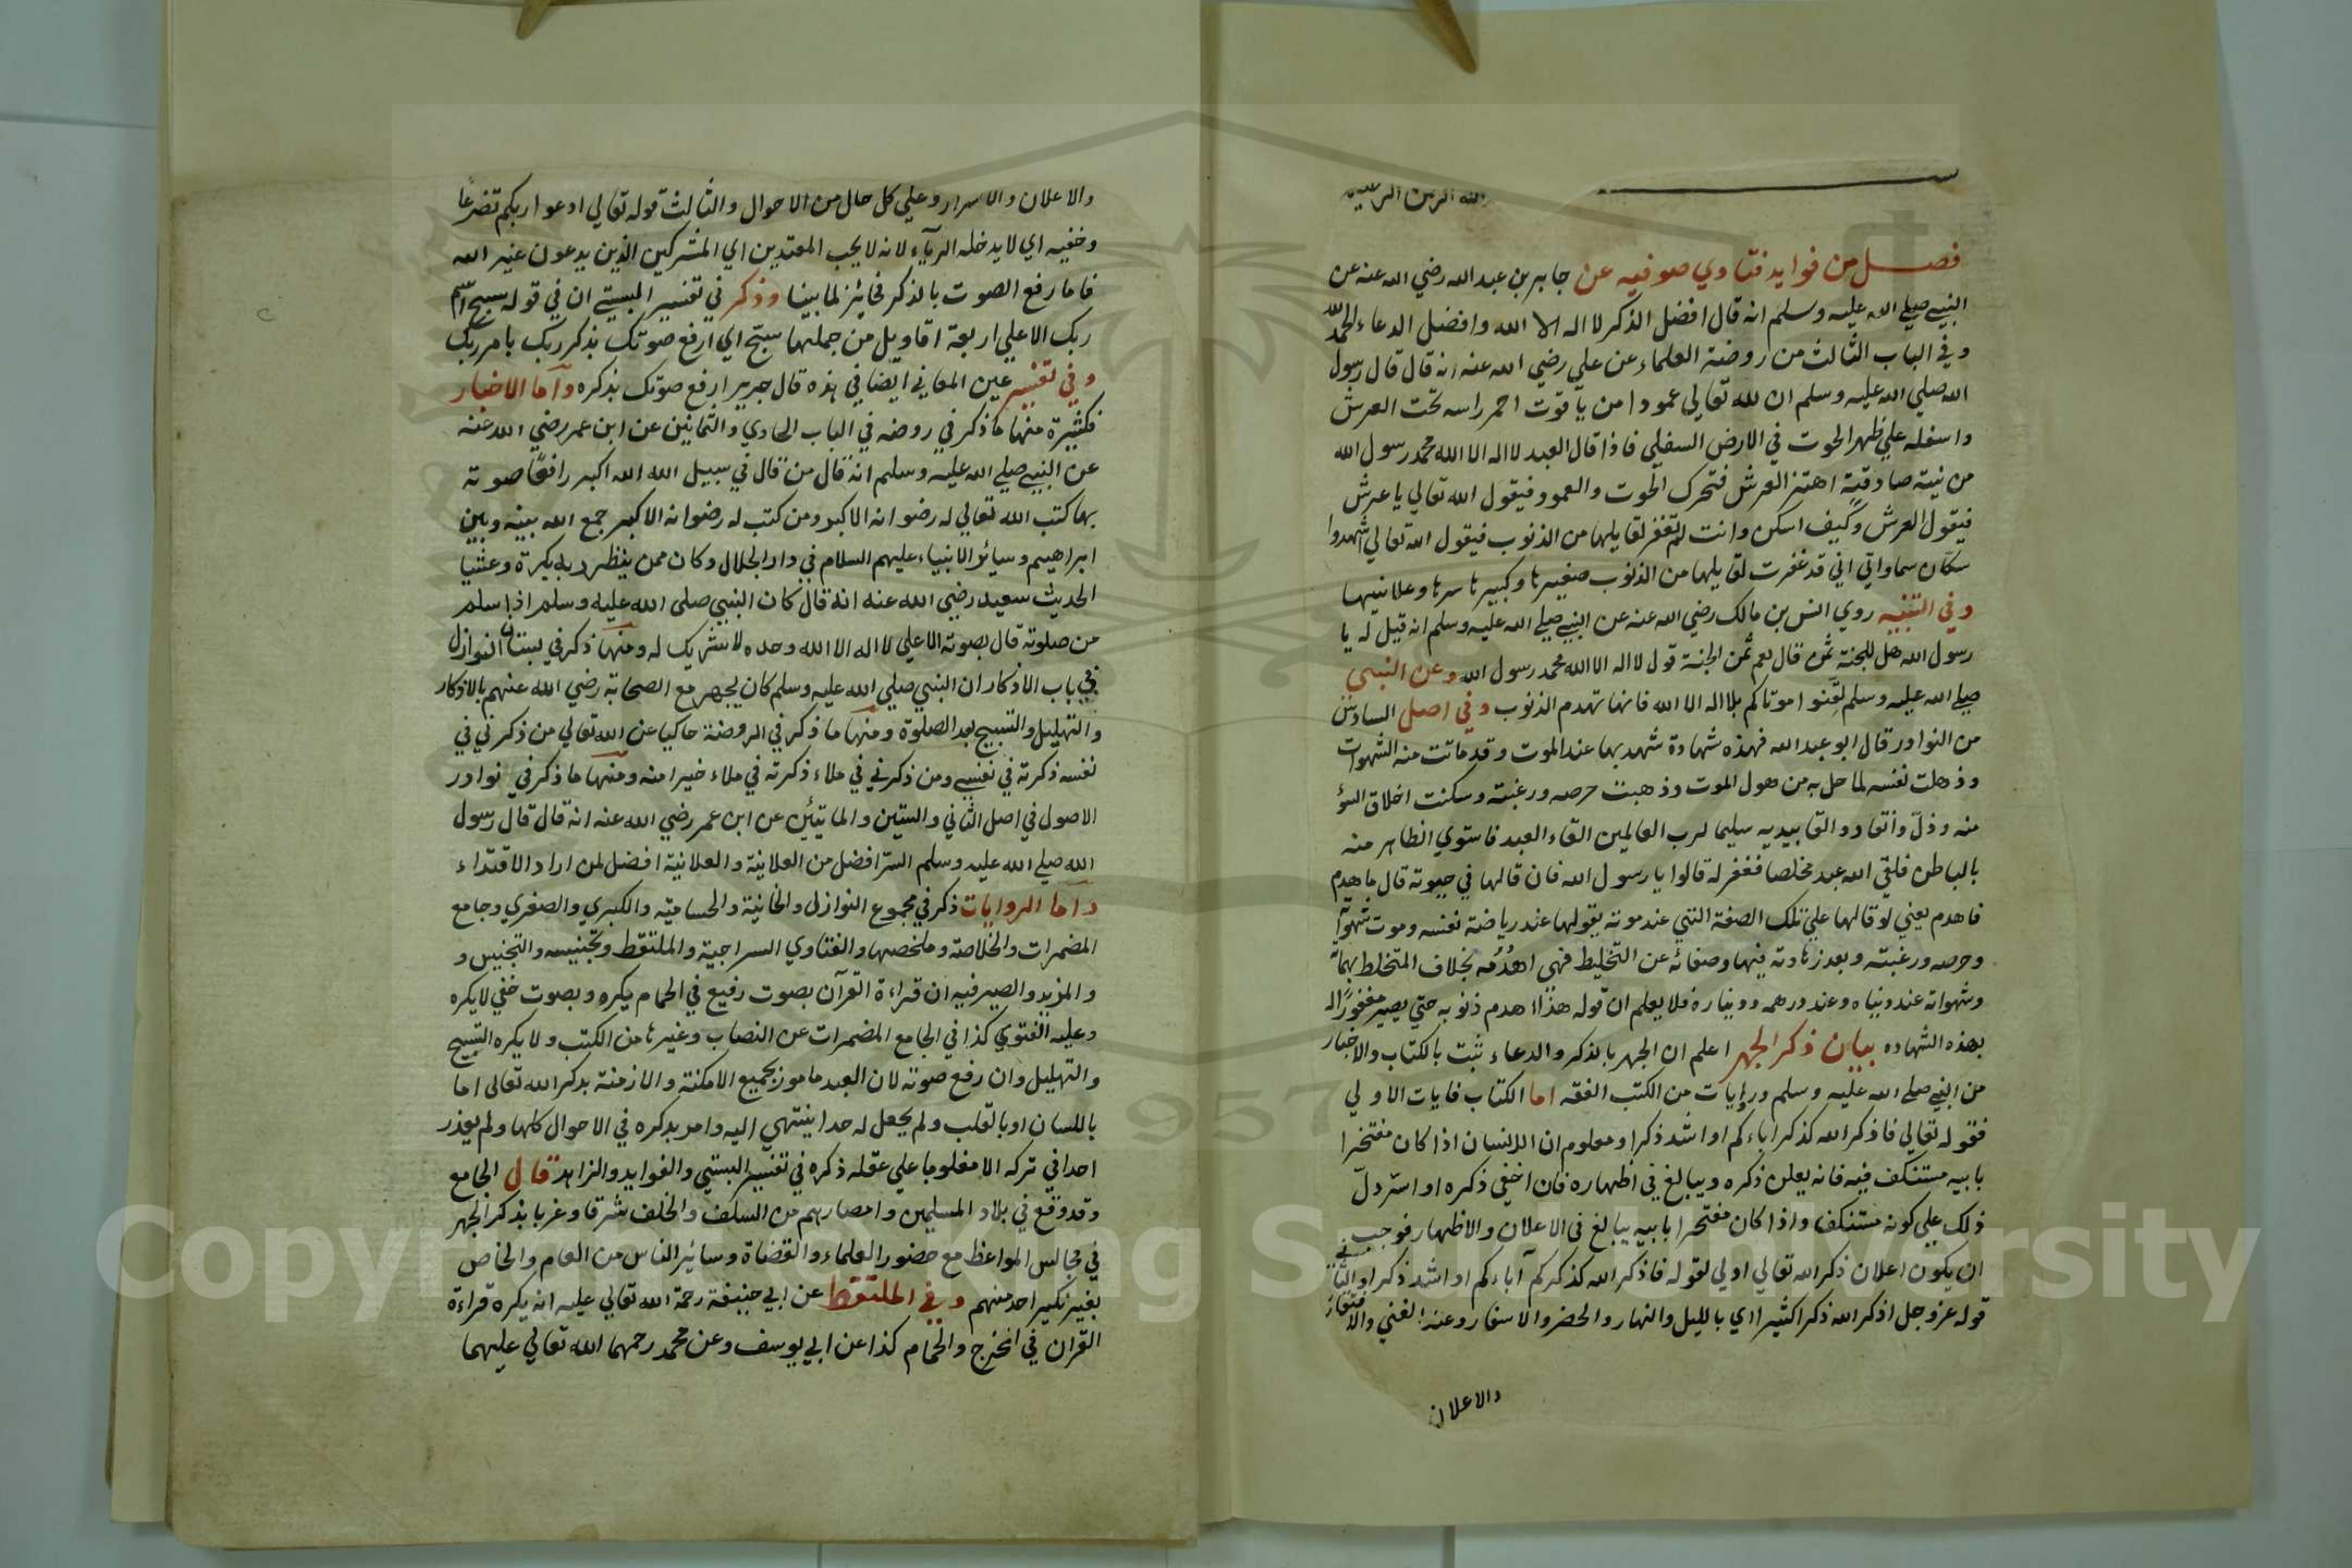 بسم الله الرحمن الرحيم
فصل من فوايد فتاوي صوفيه عن جابر بن عبد الله رضي الله عنه عن
النبي صلي الله عليه وسلم انه قال افضل الذكر لا اله الا الله وافضل الدعاء الحمد لله
وفي الباب الثالث من روضة العلماء عن علي رضي الله عنه انه قال قال رسول
الله صلي الله عليه وسلم ان لله تعالي عمودا من ياقوت احمر راسه تحت العرش
واسفله علي ظهر الحوت في الارض السفلي فاذا قال العبد لا اله الا الله محمد رسول الله
من نية صادقة اهتز العرش فتحرك الحوت والعمود فيقول الله تعالي يا عرش
فيقول العرش وكيف اسكن وانت لم تغفر لقايلها من الذنوب فيقول الله تعالي اشهدوا
سكان سماواتي اني قد غفرت لقايلها من الذنوب صغيرها وكبيرها سرها وعلانيتها
وفي التنبيه روي انس بن مالك رضي الله عنه عن النبي صلي الله عليه وسلم انه قيل له يا
رسول الله هل للجنة ثمن قال نعم ثمن الجنة قول لا اله الا الله محمد رسول الله وعن النبي
صلي الله عليه وسلم لقنوا موتاكم بلا اله الا الله فانها تهدم الذنوب وفي اصل السادس
من النوادر قال ابو عبد الله فهذه شهادة شهد بها عند الموت وقد ماتت منه الشهوات
وذهلت نفسه لما حل به من هول الموت وذهبت حرصه ورغبته وسكنت اخلاق السؤ
منه وذل وانقاد والقا بيديه سليما لرب العالمين القاء العبد فاستوي الظاهر منه
بالباطن فلقي الله عبد مخلصا فغفر له قالوا يا رسول الله فان قالها في حيوته قال ما هدم
فاهدم يعني لو قالها علي تلك الصفة التي عند موته يقولها عند رياضة نفسه وموت شهوته
وحرصه ورغبته وبعد زهادته فيها وصفائه عن التخليط فهي اهدم بخلاف المتخلط بهماته
وشهواته عند دنياه وعند درهمه وديناره فلا يعلم ان قوله هذا اهدم ذنوبه حتي يصير مغفورا له
بهذه الشهاده بيان ذكر الجهر اعلم ان الجهر بالذكر والدعاء ثبت بالكتاب والاخبار
من النبي صلي الله عليه وسلم وروايات من الكتب الفقه اما الكتاب فايات الاولي
فقوله تعالي فاذكر الله كذكر اباءكم او اشد ذكرا ومعلوم ان الانسان اذا كان مفتخرا
بابيه مستنكف فيه فانه يعلن ذكره ويبالغ في اظهاره فان اخفي ذكره او استر دل
ذلك علي كونه مستنكفا واذا كان مفتخرا بابيه يبالغ في الاعلان والاظهار فوجب
ان يكون اعلان ذكر الله تعالي اولي لقوله فاذكر الله كذكركم آباءكم او اشد ذكرا والثاني
قوله عز وجل اذكر الله ذكرا كثيرا اي بالليل والنهار والحضر والاسفار وعند الغني والافتقار
والاعلان
والاعلان والاسرار وعلي كل حال من الاحوال والثالث قوله تعالي ادعوا ربكم تضرعا
وخفيه اي لا يدخله الرياء لانه لا يحب المعتدين اي المشركين الذين يدعون غير الله
فاما رفع الصوت بالذكر فجائز لما بينا وذكر في تفسير البستي ان في قوله سبح اسم
ربك الاعلي اربعة اقاويل من جملها سبح اي ارفع صوتك بذكر ربك بامر ربك
وفي تفسير عين المعاني ايضا في هذه قال جرير ارفع صوتك بذكره واما الاخبار
فكثيرة منها ما ذكر في روضه في الباب الحادي والثمانين عن ابن عمر رضي الله عنه
عن النبي صلي الله عليه وسلم انه قال من قال في سبيل الله الله اكبر رافعا صوته
بها كتب الله تعالي له رضوانه الاكبر ومن كتب له رضوانه الاكبر جمع الله بينه وبين
ابراهيم وسائر الانبياء عليهم السلام في دار الجلال وكان ممن ينظر ربه بكرة وعشيا
الحديث سعيد رضي الله عنه انه قال كان النبي صلي الله عليه وسلم اذا سلم
من صلوته قال بصوته الاعلي لا اله الا الله وحده لا شريك له ومنها ذكر في بستان النوازل
في باب الاذكار ان النبي صلي الله عليه وسلم كان يجهر مع الصحابة رضي الله عنهم بالاذكار
والتهليل والتسبيح بعد الصلوة ومنها ما ذكر في الروضة حاكيا عن الله تعالي من ذكرني في
نفسه ذكرته في نفسي ومن ذكرني في ملاء ذكرته في ملاء خيرا منه ومنها ما ذكر في نوادر
الاصول في اصل الثاني والستين والمايتين عن ابن عمر رضي الله عنه انه قال قال رسول
الله صلي الله عليه وسلم السر افضل من العلانية والعلانية افضل لمن اراد الاقتداء
واما الروايات ذكر في مجموع النوازل والخانية والحساميه والكبري والصغري وجامع
المضمرات والخلاصة وملخصها والفتاوي السراجية والملتقط وتجنيسه والتجنيس و
والمزيد والصيرفيه ان قراءة القرآن بصوت رفيع في الحمام يكره وبصوت خفي لا يكره
وعليه الفتوي كذا في الجامع المضمرات عن النصاب وغيرها من الكتب ولا يكره التسبيح
والتهليل وان رفع صوته لان العبد مامور بجميع الامكنة والازمنة بذكر الله تعالي اما
باللسان او بالقلب ولم يجعل له حدا ينتهي اليه وامر بذكره في الاحوال كلها ولم يعذر
احدا في تركه الا مغلوبا علي عقله ذكره في تفسير البستي والفوايد والزاهد قال الجامع
وقد وقع في بلاد المسلمين وامصارهم من السلف والخلف شرقا وغربا بذكر الجهر
في مجالس المواعظ مع حضور العلماء والقضاة وسائر الناس من العام والخاص
بغير نكير احد منهم وفي الملتقط عن ابي حنيفة رحمة الله تعالي عليه انه يكره قراءة
القران في المخرج والحمام كذا عن ابي يوسف وعن محمد رحمهما الله تعالي عليهما
Copyright © King Saud University
1957